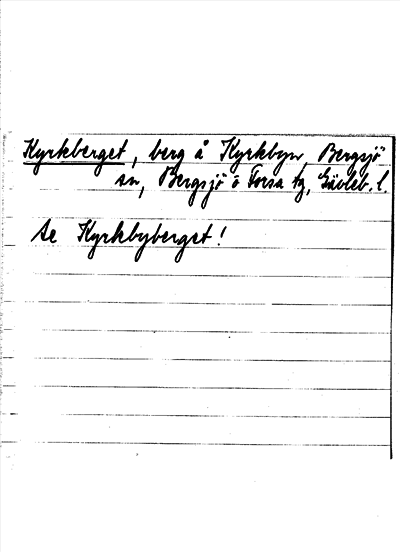 Kyrkberget, berg å Kyrkbyn, Bergsjö
sn, Bergsjö o Forsa tg, Gävleb. l.
Se Kyrkbyberget!